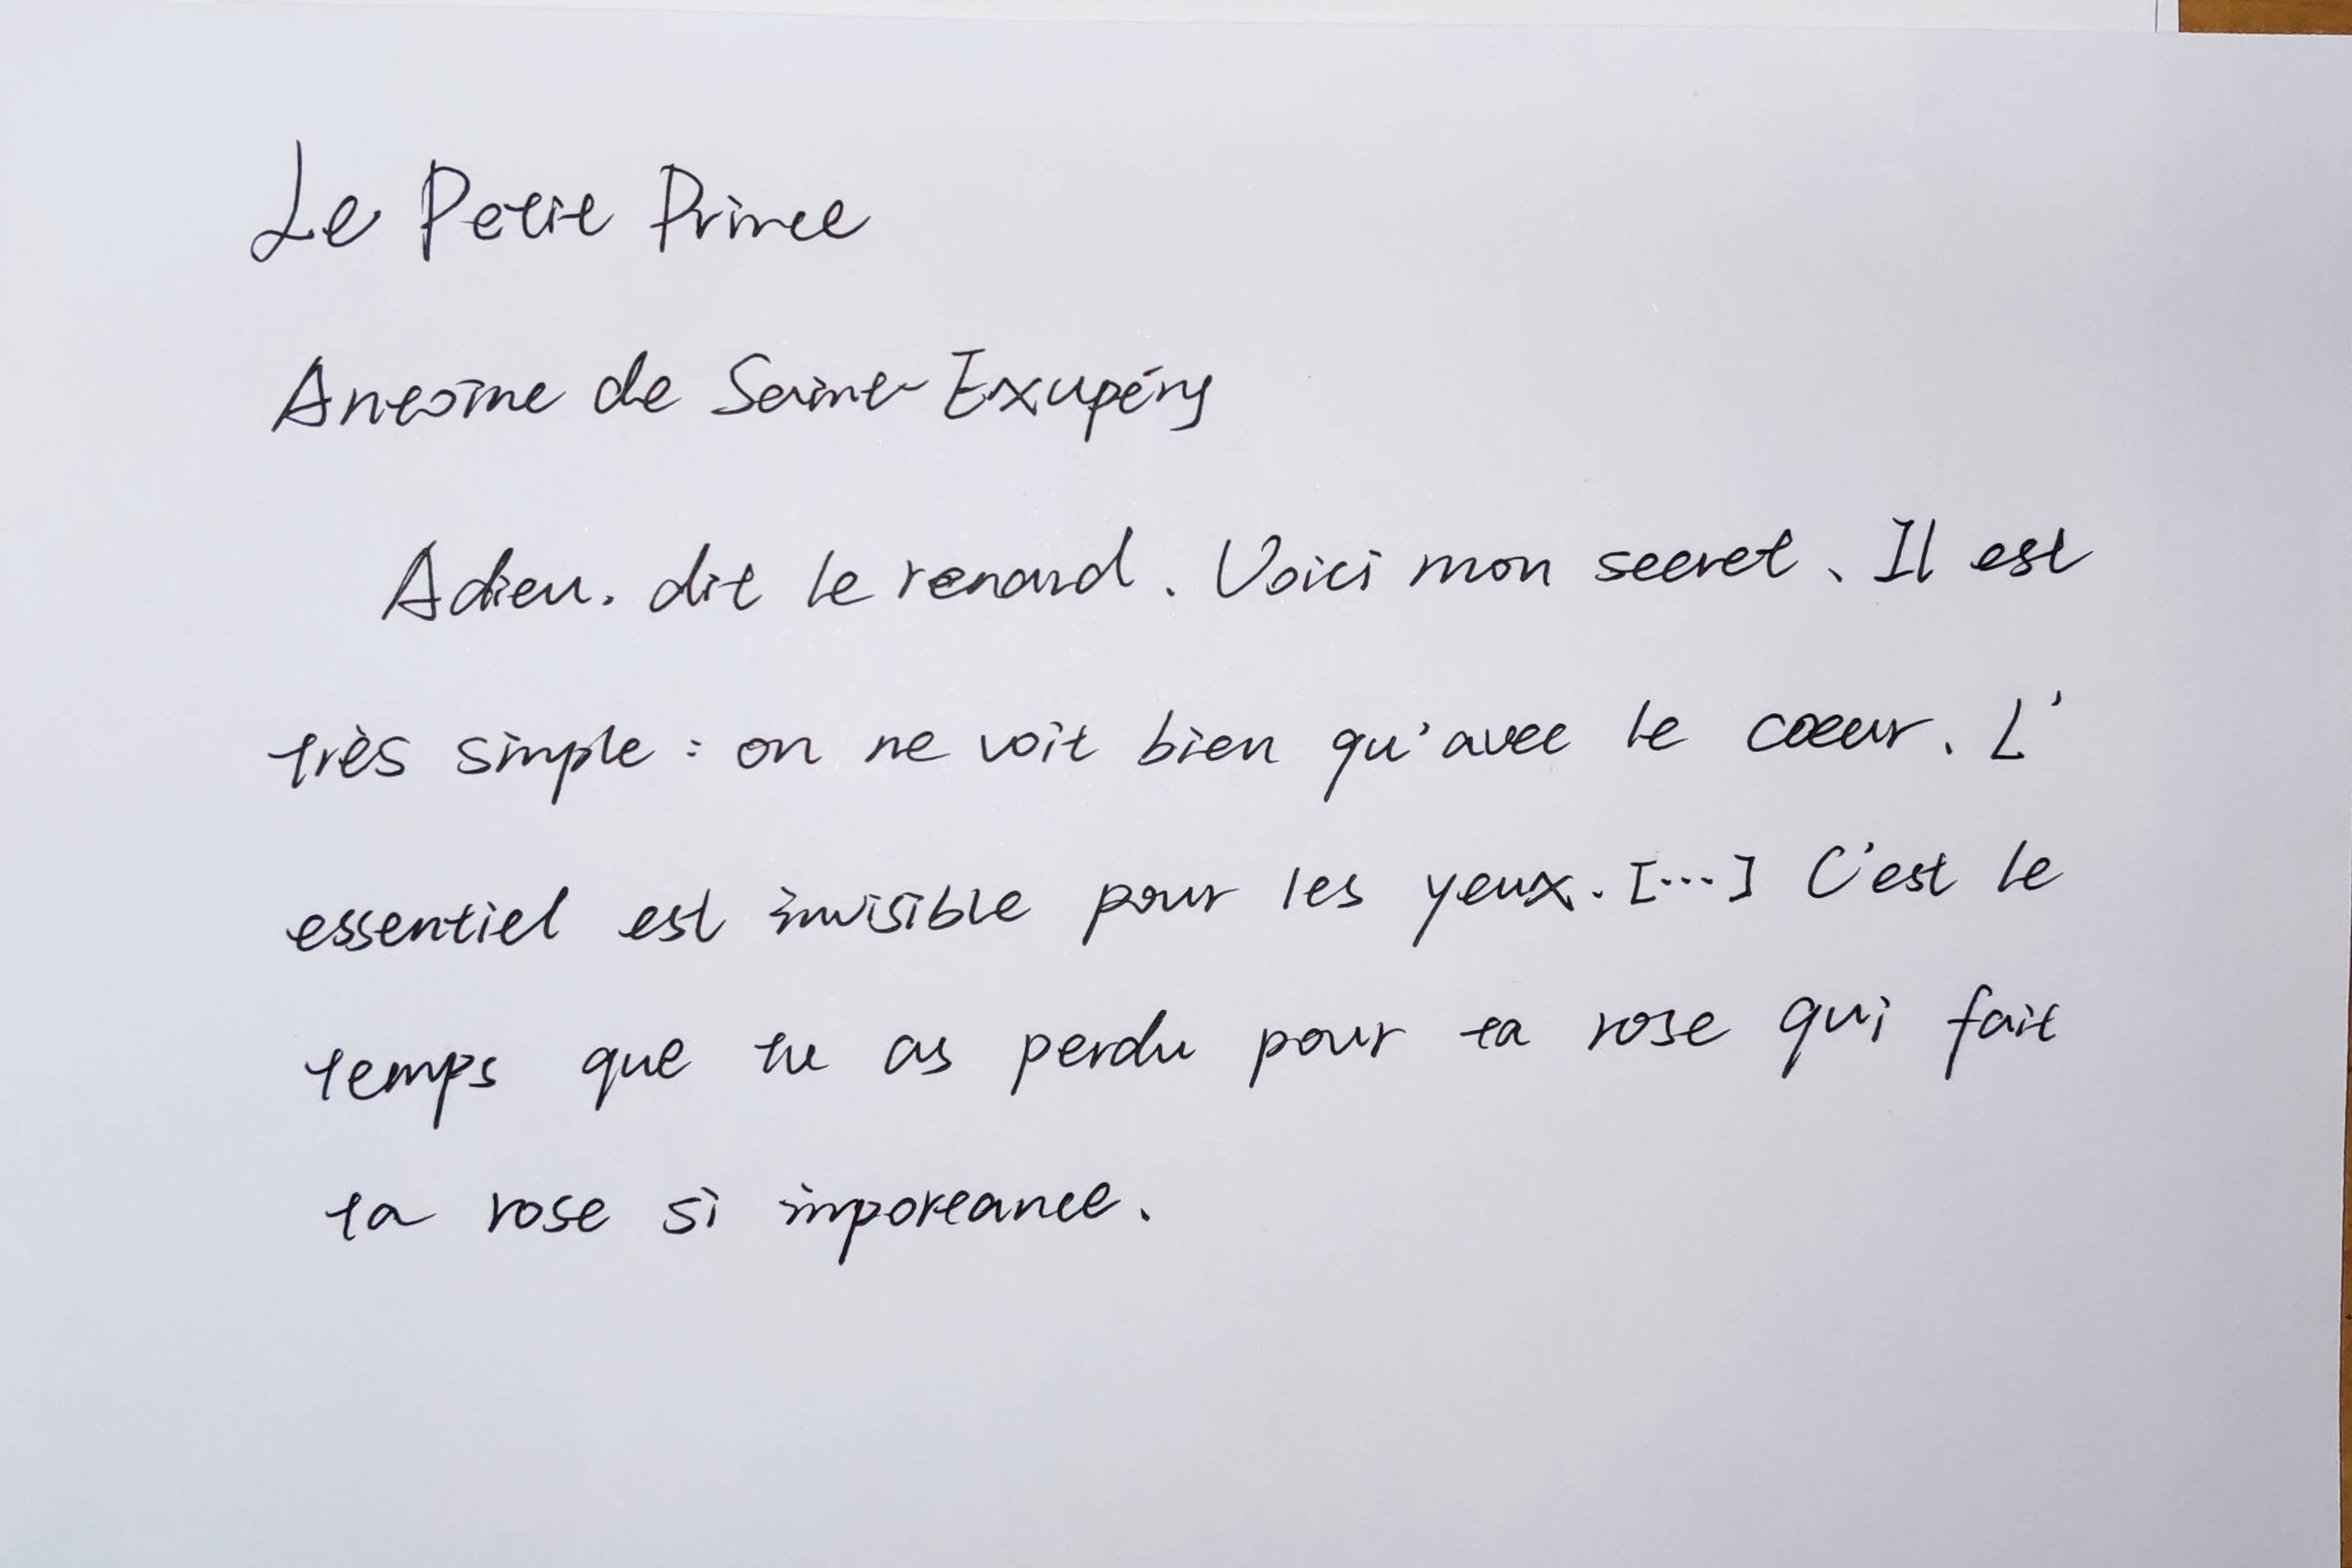 Le Petit Prince
Antoine de Saint-Exupéry
Adieu. dit le renard. Voici mon secret. Il est
très simple : on ne voit bien qu'avec le cœur. L'
essentiel est invisible pour les yeux. [...] C'est le
temps que tu as perdu pour ta rose qui fait
ta rose si importance.